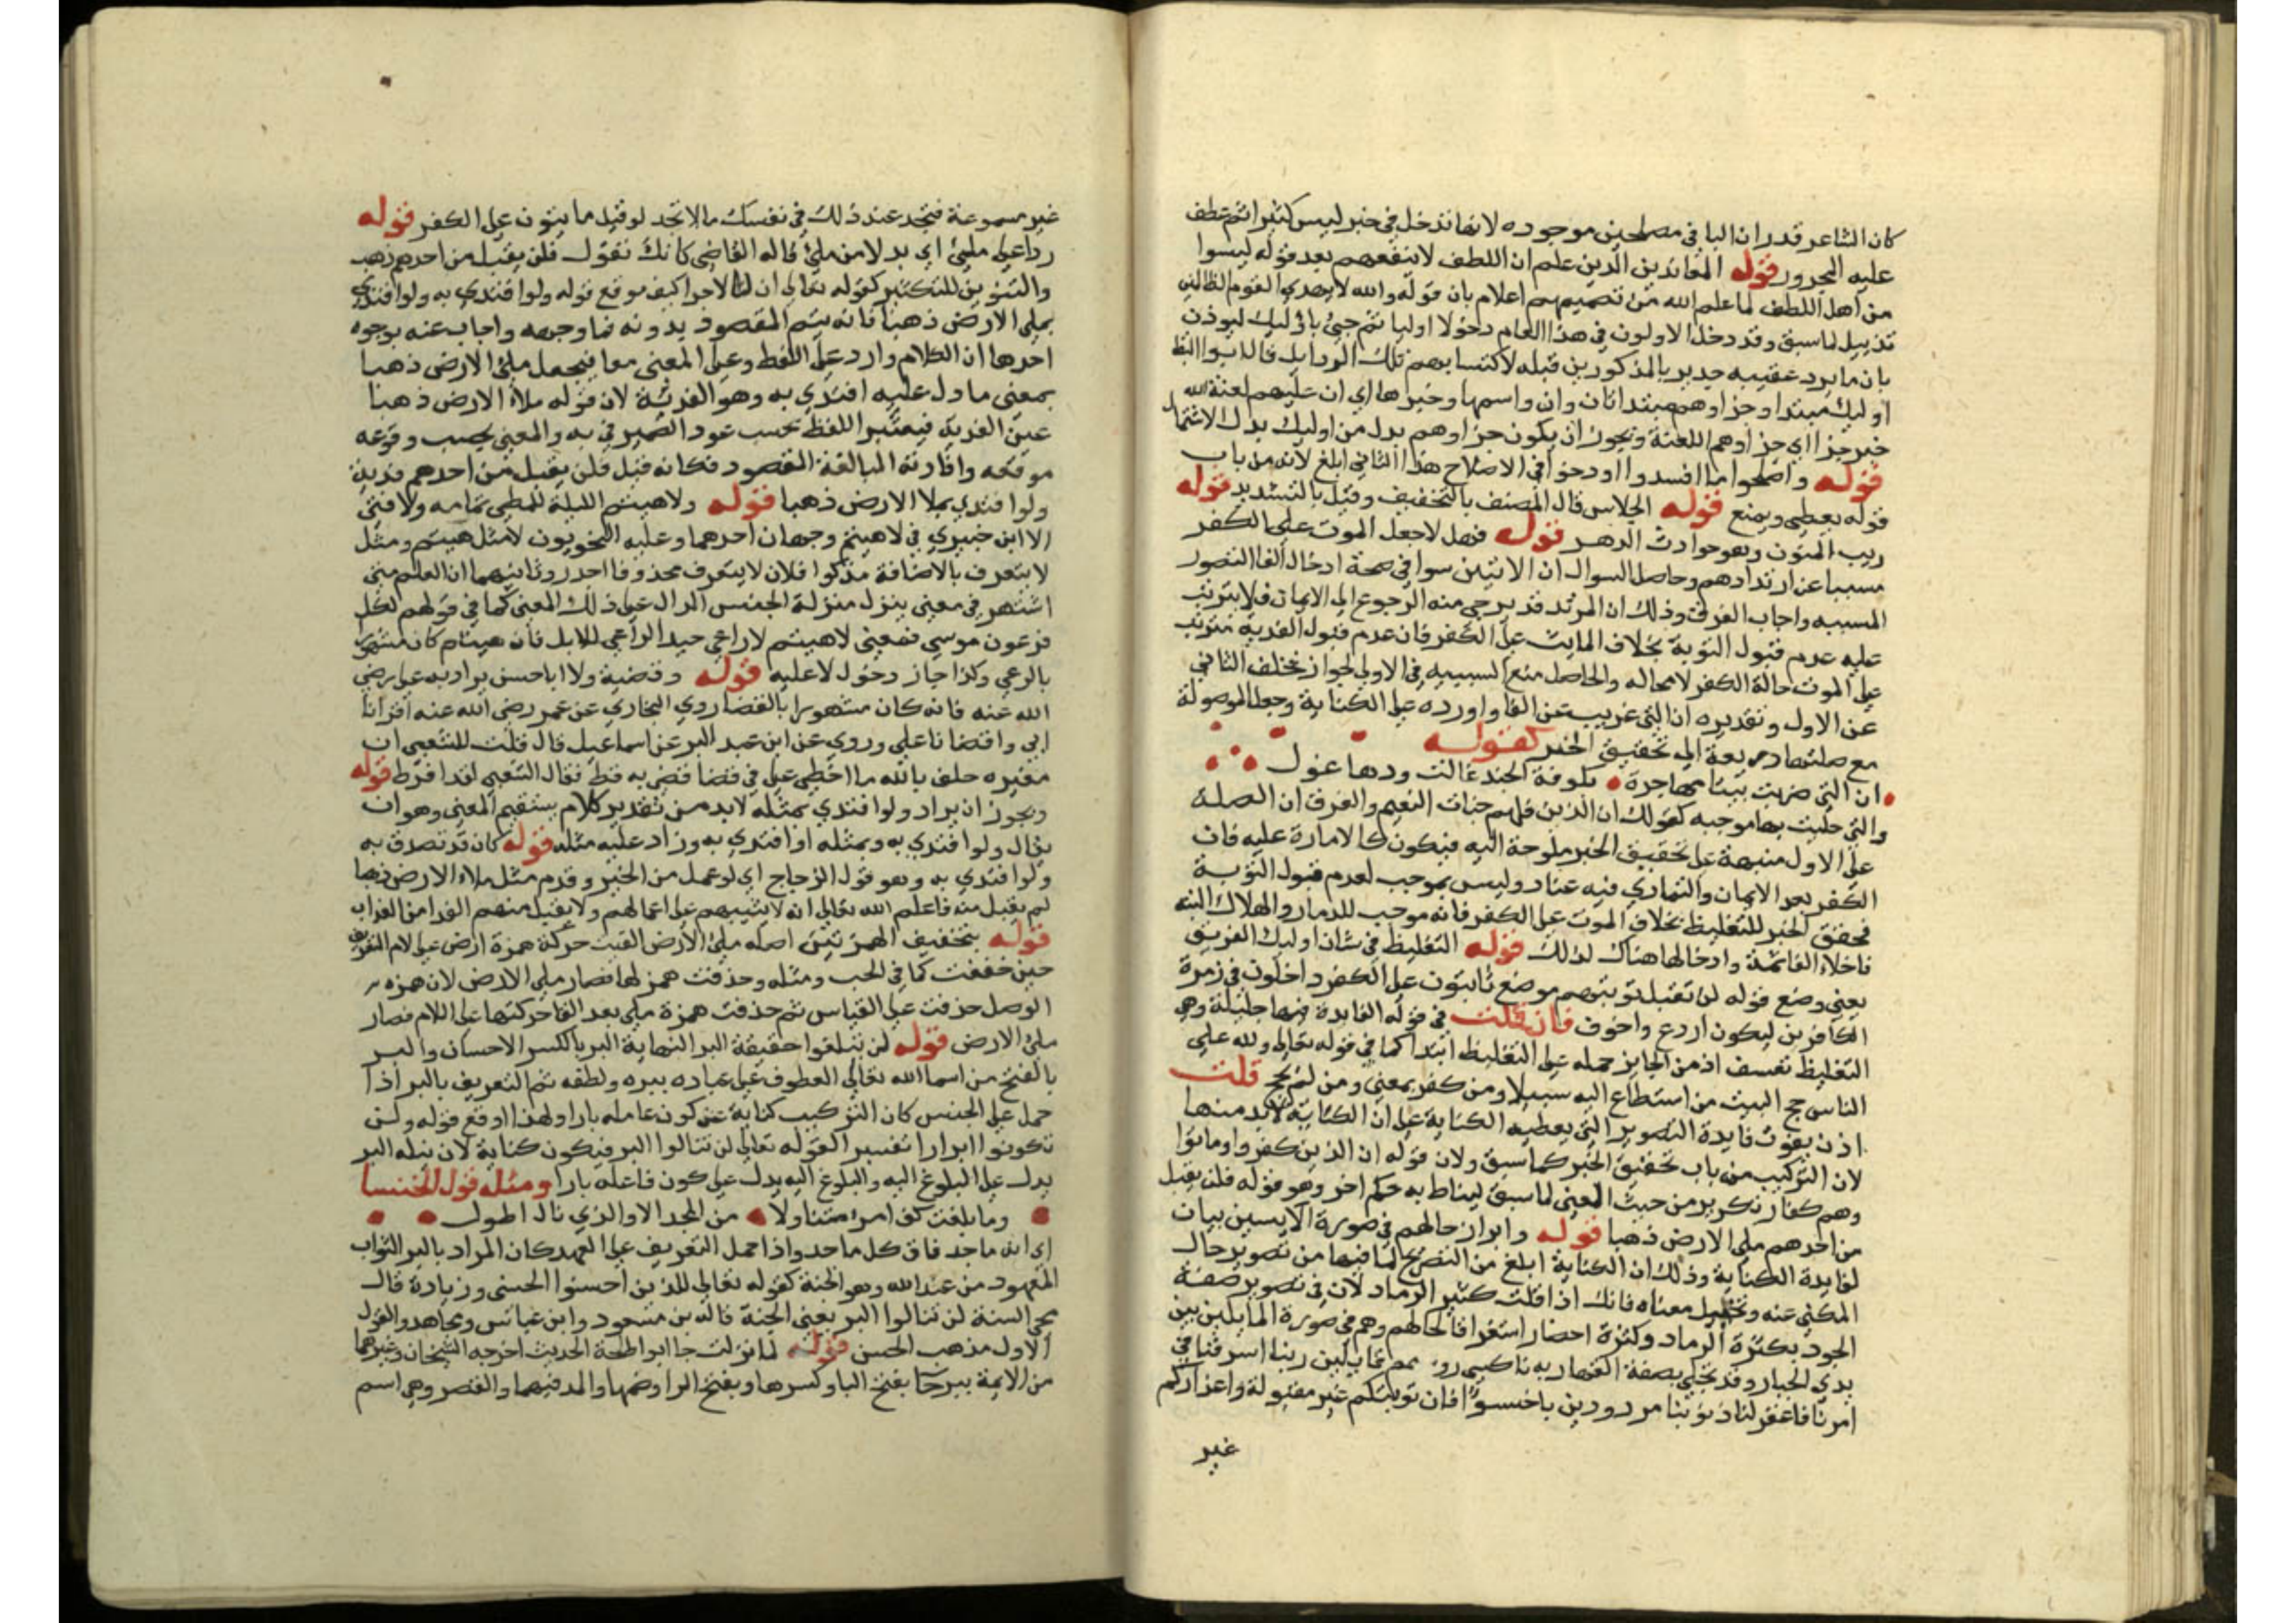 كان الشاعر قدر ان البا في مصلحين موجوده لانها تدخل في خبر ليس كثيرا ثم عطف
عليه المجرور قوله المعاندين الذين علم ان اللطف لا ينفعهم بعد قوله ليسوا
من اهل اللطف لما علم الله من تصميمهم اعلام بان قوله والله لا يهدي القوم الظالمين
تذييل لما سبق وقد دخل الاولون في هذا العام دخولا اوليا ثم جيئ باوليك ليوذن
بان ما يرد عقيبه جدير بالمذكورين قبله لاكتسابهم تلك الرذايل قال ابو البقا
اوليك مبتدا وجزاوهم مبتدا ثان وان واسمها وخبرها اي ان عليهم لعنة الله
خبر جزا اي جزاوهم اللعنة ويجوز ان يكون جزاوهم بدل من اوليك بدل الاشتمال
قوله واصلحوا ما افسدوا او دخلوا في الاصلاح هذا الثاني ابلغ لانه من باب
قوله يعطي ويمنع قوله الجلاس قال المصنف بالتخفيف وقيل بالتشديد قوله
ريب المنون وهو حوادث الدهر قوله فهل لا جعل الموت على الكفر
مسببا عن ارتدادهم وحاصل السوال ان الاثنين سوا في صحة ادخال الفا لتصور
المسببه واجاب الفرق وذلك ان المرتد قد يرجى منه الرجوع الى الايمان فلا يترتب
عليه عدم قبول التوبة بخلاف المايت على الكفر فان عدم قبول الفدية مترتب
على الموت حالة الكفر لا محاله والحاصل منع السببيه في الاولى لجواز تخلف الثاني
عن الاول وتقديره ان التي عريب عن الفا واورده على الكناية وجعل الموصولة
مع صلتها ذريعة الى تحقيق الخبر كقوله
ان التي ضربت بيتا مهاجرة بكوفة الجند غالت ودها غول
والتي جليت بها موجبه كقولك ان الذين فلهم جنات النعيم والفرق ان الصلة
على الاول منبهة على تحقيق الخبر ملوحة اليه فيكون كالامارة عليه فان
الكفر بعد الايمان والتمادي فيه عناد وليس بموجب لعدم قبول التوبة
فحقق الخبر للتغليظ بخلاف الموت على الكفر فانه موجب للدمار والهلاك البته
فاخلاء الفا ثمة وادخالها هناك لذلك قوله التغليظ في شان اوليك الفريق
يعني وضع قوله لن تقبل توبتهم موضع ثابتون على الكفر داخلون في زمرة
الكافرين ليكون اردع واخوف فان قلت في قوله الفايدة فيها جليلة وهي
التغليظ تعسف اذ من الجايز حمله على التغليظ ابتدا كما في قوله تعالى ولله على
الناس حج البيت من استطاع اليه سبيلا ومن كفر بمعنى ومن لم يحج قلت
اذن يفوت فايدة التصوير التي يعطيه الكناية على ان الكناية لا بد منها
لان التركيب من باب تحقيق الخبر كما سبق ولان قوله ان الذين كفروا وماتوا
وهم كفار تكرير من حيث المعنى لما سبق ليناط به حكم اخر وهو قوله فلن يقبل
من احدهم ملي الارض ذهبا قوله وابراز حالهم في صورة الآيسين بيان
لفايدة الكناية وذلك ان الكناية ابلغ من التصريح لما فيها من تصوير حال
المكني عنه وتخييل معناه فانك اذا قلت كثير الرماد لان في تصوير صفة
الجود بكثرة الرماد وكثرة احضار استغراقا لحالهم وهم في صورة الماثلين بين
يدي الجبار وقد تجلى بصفة القهاريه ناكسي روسهم قايلين ربنا اسرفنا في
امرنا فاغفر لنا ذنوبنا مردودين باخسئوا فان توبتكم غير مقبولة واعذاركم
غير
غير مسموعة فتجد عند ذلك في نفسك ما لا تجد لو قيل ما يتون على الكفر قوله
ردا على مليئ اي بدلا من ملئ قاله القاضي كانك تقول فلن يقبل من احدهم ذهب
والتنوين للتكثير كقوله تعالى ان لنا لاجرا كيف موقع قوله ولو افتدي به ولو افتدي
بملى الارض ذهبا فانه يتم المقصود بدونه فما وجهه واجاب عنه بوجوه
احدها ان الكلام وارد على اللفظ وعلى المعنى معا فيجعل ملئ الارض ذهبا
بمعنى ما دل عليه افتدي به وهو الفدية لان قوله ملأ الارض ذهبا
عين الفدية فيعتبر اللفظ بحسب عود الضمير في به والمعنى بحسب وقوعه
موقعه وافادته المبالغة المقصود فكانه قيل فلن يقبل من احدهم فدية
ولو افتدي بملا الارض ذهبا قوله ولا هيثم الليلة للمطي تمامه ولا فتى
الا ابن خيبري في لا هيثم وجهان احدهما وعليه النحويون لا مثل هيثم ومثل
لا يتعرف بالاضافة مذكوا فلان لا يتعرف محذوفا احدر وثانيهما ان العلم متى
اشتهر في معنى ينزل منزلة الجنس الدال على ذلك المعنى كما في قولهم لكل
فرعون موسى فمعنى لا هيثم لا راعي جيد الراعي للابل فان هيثم كان مشهورا
بالرعي وكذا جاز دخول لا عليه قوله وقضية ولا ابا حسن يراد به علي رضي
الله عنه فانه كان مشهورا بالقضا روي البخاري عن عمر رضي الله عنه اقرانا
ابي واقضانا علي وروي عن ابن عبد البر عن اسماعيل قال قلت للشعبي ان
مغيره حلف بالله ما اخطي علي في قضا قضى به قط فقال الشعبي لقد افرط قوله
ويجوز ان يراد ولو افتدي بمثله لا بد من تقدير كلام يستقيم المعنى وهو ان
يقال ولو افتدي به وبمثله او افتدي به وزاد عليه مثله قوله كان قد تصدق به
ولو افتدي به وهو قول الزجاج اي لو عمل من الخير وقدم مثل ملاء الارض ذهبا
لم يقبل منه فاعلم الله تعالى انه لا يثيبهم على اعمالهم ولا يقبل منهم الفدا من العذاب
قوله بتخفيف الهمزتين اصله ملئ الارض القيت حركة همزة ارض على لام التعريف
حين خففت كما في الخب ومثله وحذفت همزلها فصار ملى الارض لان همزه
الوصل حذفت على القياس ثم حذفت همزة ملى بعد القا حركتها على اللام فصار
ملئ الارض قوله لن تبلغوا حقيقة البر النهاية البر بالكسر الاحسان والبر
بالفتح من اسما الله تعالى العطوف على عباده ببره ولطفه ثم التعريف بالبر اذا
حمل على الجنس كان التركيب كناية عن كون عامله بارا ولهذا اوقع قوله ولن
تكونوا ابرارا تفسيرا لقوله تعالى لن تنالوا البر فيكون كناية لان نيله البر
يدل على البلوغ اليه والبلوغ اليه يدل على كون فاعله بارا ومثله قول الخنسا
وما بلغت كف امرئ متناولا من المجد الا والذي نال اطول
اي انه ماجد فاق كل ماجد واذا حمل التعريف على العهد كان المراد بالبر الثواب
المعهود من عند الله وهو الجنة كقوله تعالى للذين احسنوا الحسنى وزيادة قال
محي السنة لن تنالوا البر يعني الجنة قاله بن مسعود وابن عباس ومجاهد والقول
الاول مذهب الحسن قوله لما نزلت جا ابو اطلحة الحديث اخرجه الشيخان وغيرهما
من الايمة بيرحا بفتح البا وكسرها وبفتح الرا وضمها والمد فيهما والقصر وهي اسم